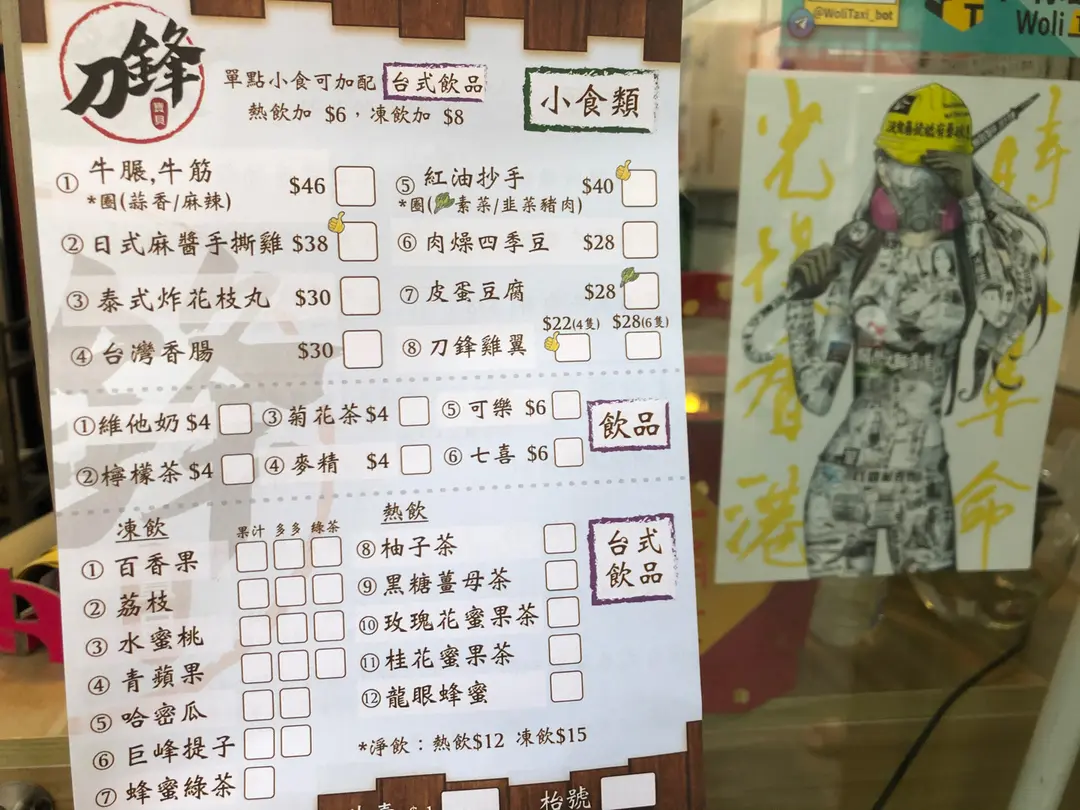 刀鋒
寶貝
單點小食可加配 台式飲品
熱飲加 $6，凍飲加 $8
小食類
① 牛𦟌,牛筋 $46
*圈(蒜香/麻辣)
② 日式麻醬手撕雞 $38
③ 泰式炸花枝丸 $30
④ 台灣香腸 $30
⑤ 紅油抄手 $40
*圈(素菜/韭菜豬肉)
⑥ 肉燥四季豆 $28
⑦ 皮蛋豆腐 $28
$22(4隻) $28(6隻)
⑧ 刀鋒雞翼
飲品
①維他奶 $4
②檸檬茶 $4
③ 菊花茶 $4
④ 麥精 $4
⑤ 可樂 $6
⑥ 七喜 $6
台式
飲品
凍飲
果汁 多多 綠茶
① 百香果
② 荔枝
③ 水蜜桃
④ 青蘋果
⑤ 哈密瓜
⑥ 巨峰提子
⑦ 蜂蜜綠茶
熱飲
⑧ 柚子茶
⑨ 黑糖薑母茶
⑩ 玫瑰花蜜果茶
⑪ 桂花蜜果茶
⑫ 龍眼蜂蜜
*淨飲：熱飲$12 凍飲$15
枱號
@WoliTaxi_bot
Woli
光復香港
革命